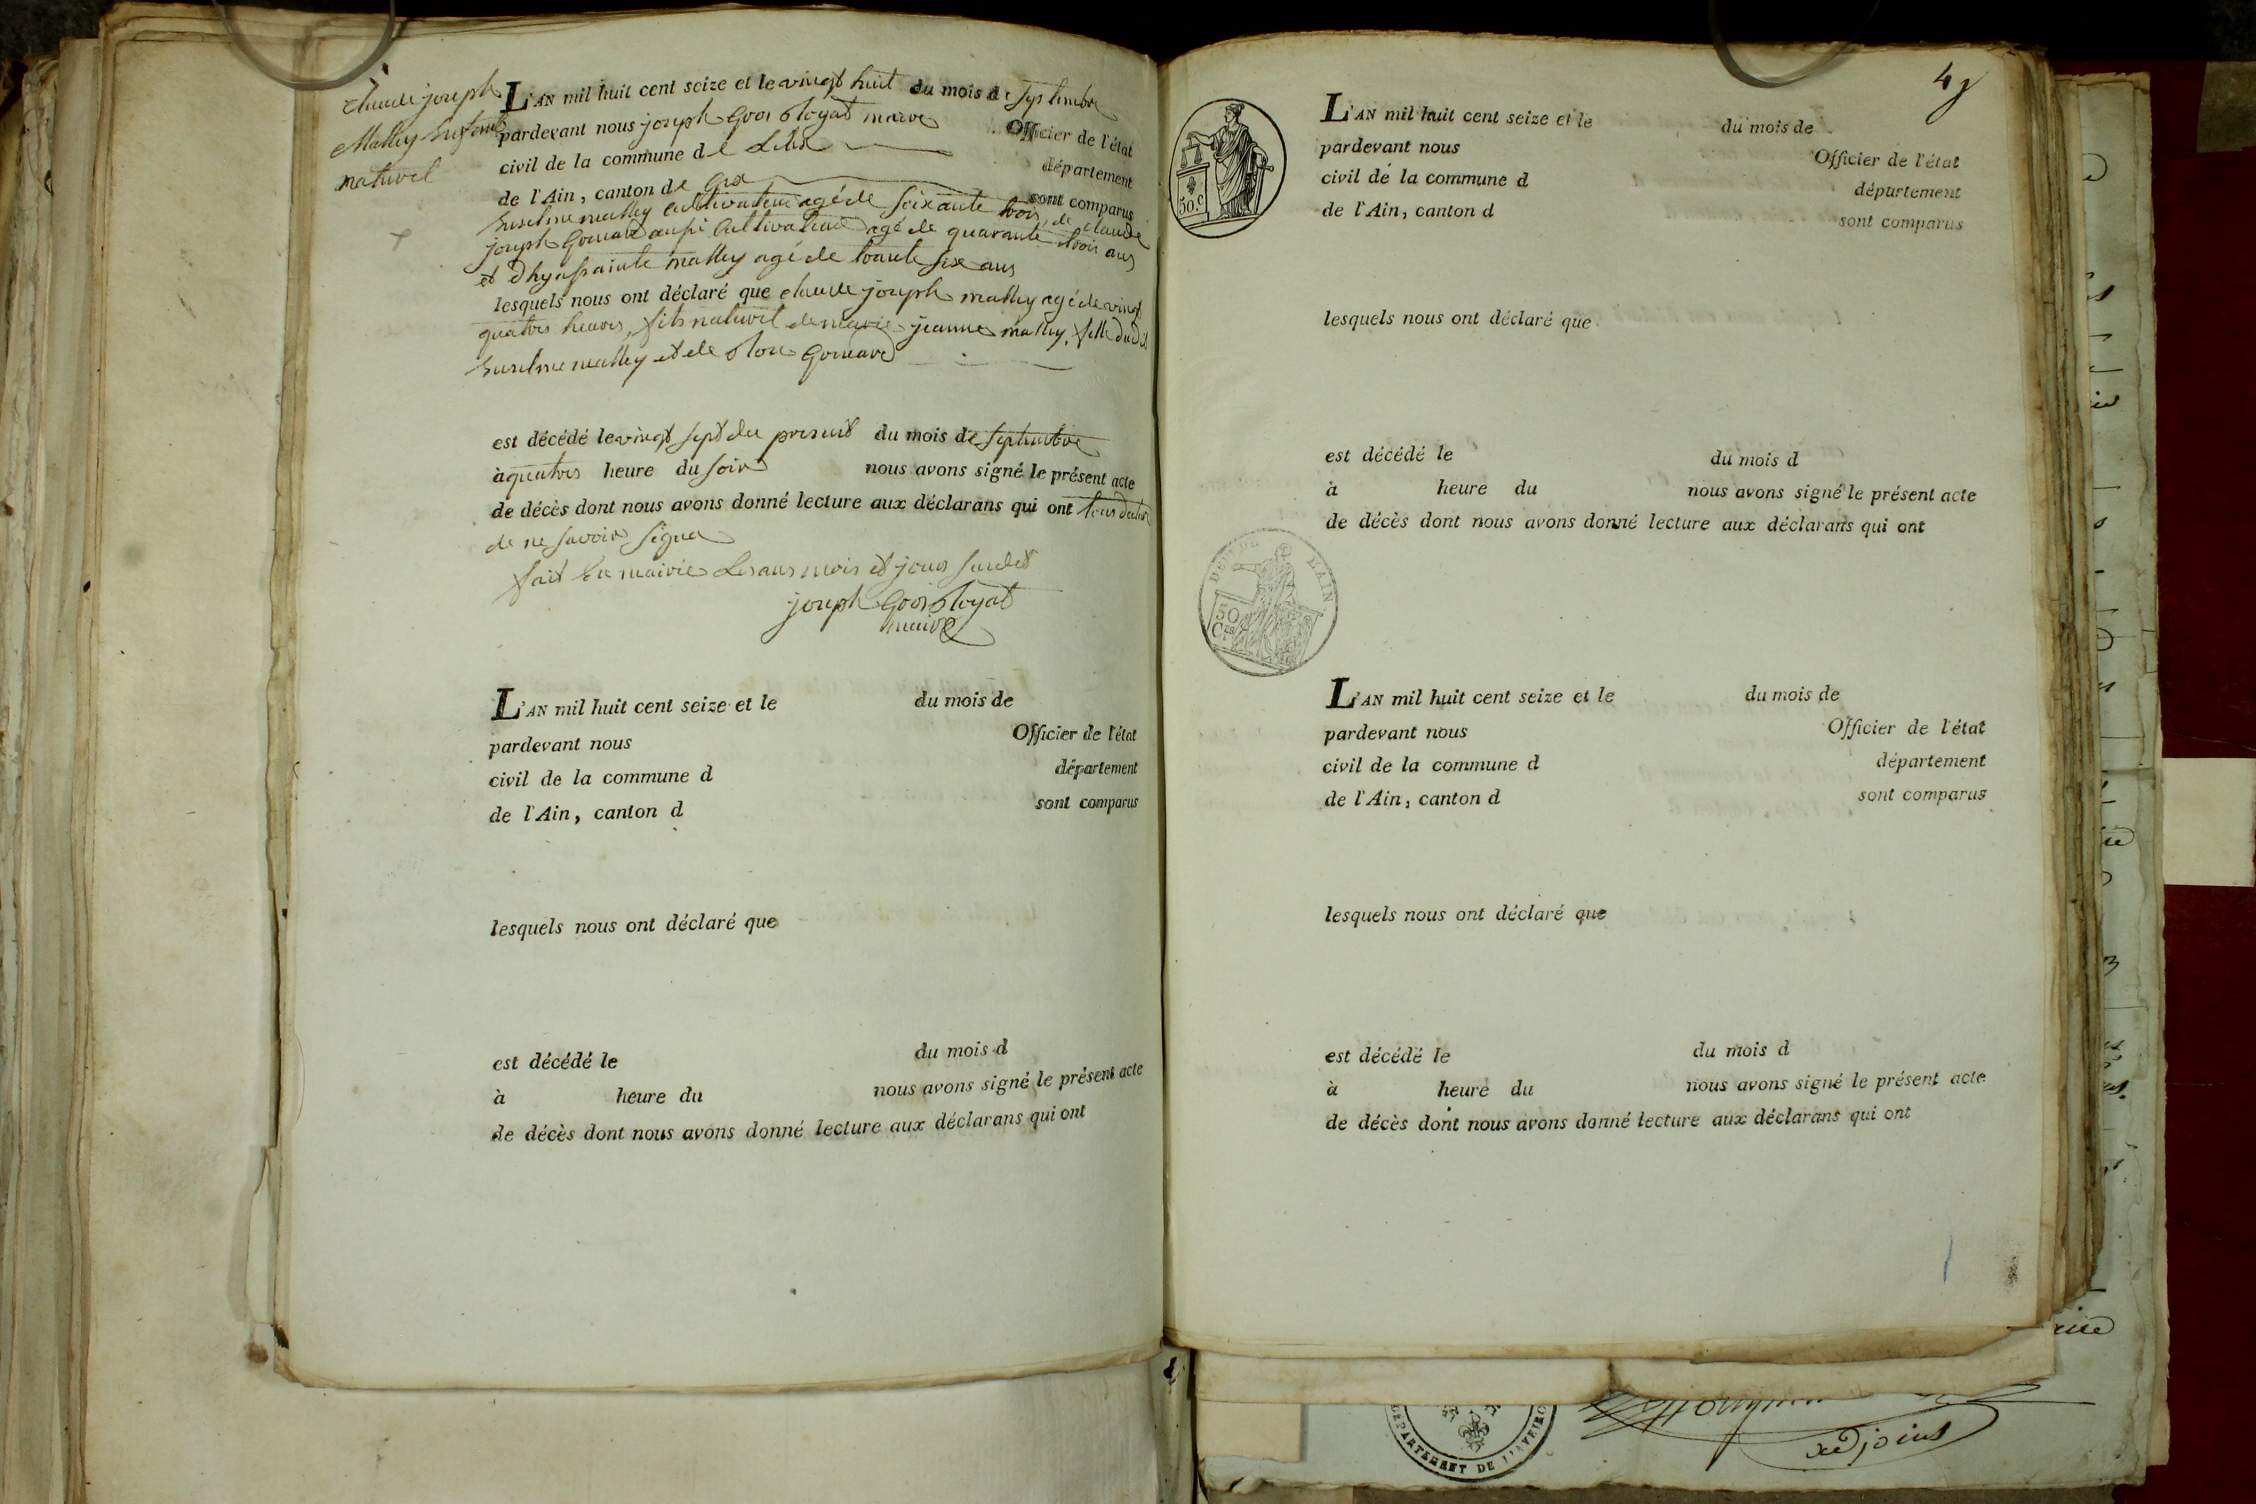 claude joseph
Mathey enfant
naturel
L'AN mil huit cent seize et le vingt huit du mois de Septembre
pardevant nous joseph maire Officier de l'état
civil de la commune de département
de l'Ain, canton de Gex sont comparus
mathey cultivateur agé de soixante trois, de claude
joseph Gouard aussi cultivateur agé de quarante trois ans
et mathey agé de trante six ans
lesquels nous ont déclaré que claude joseph mathey agé de vingt
quatres heures, fils naturel de marie jeanne mathey, fille dudit
mathey et de Gouard
est décédé le vingt sept du presant du mois de septembre
à quatres heure du soir nous avons signé le présent acte
de décès dont nous avons donné lecture aux déclarans qui ont tous déclaré
de ne savoir signer
fait en mairie les ans mois et jour susdit
joseph
maire
L'AN mil huit cent seize et le du mois de
pardevant nous Officier de l'état
civil de la commune d département
de l'Ain, canton d sont comparus
lesquels nous ont déclaré que
est décédé le du mois d
à heure du nous avons signé le présent acte
de décès dont nous avons donné lecture aux déclarans qui ont
4
50.c
L'AN mil huit cent seize et le du mois de
pardevant nous Officier de l'état
civil de la commune d département
de l'Ain, canton d sont comparus
lesquels nous ont déclaré que
est décédé le du mois d
à heure du nous avons signé le présent acte
de décès dont nous avons donné lecture aux déclarans qui ont
L'AIN.
50
L'AN mil huit cent seize et le du mois de
pardevant nous Officier de l'état
civil de la commune d département
de l'Ain, canton d sont comparus
lesquels nous ont déclaré que
est décédé le du mois d
à heure du nous avons signé le présent acte
de décès dont nous avons donné lecture aux déclarans qui ont
DÉPARTEMENT DE L'AVEIRO
adjoint